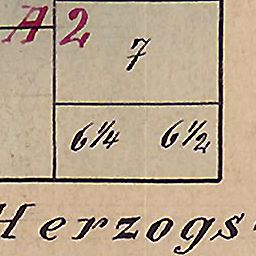 A 2
7
6¼ 6½
Herzogs-